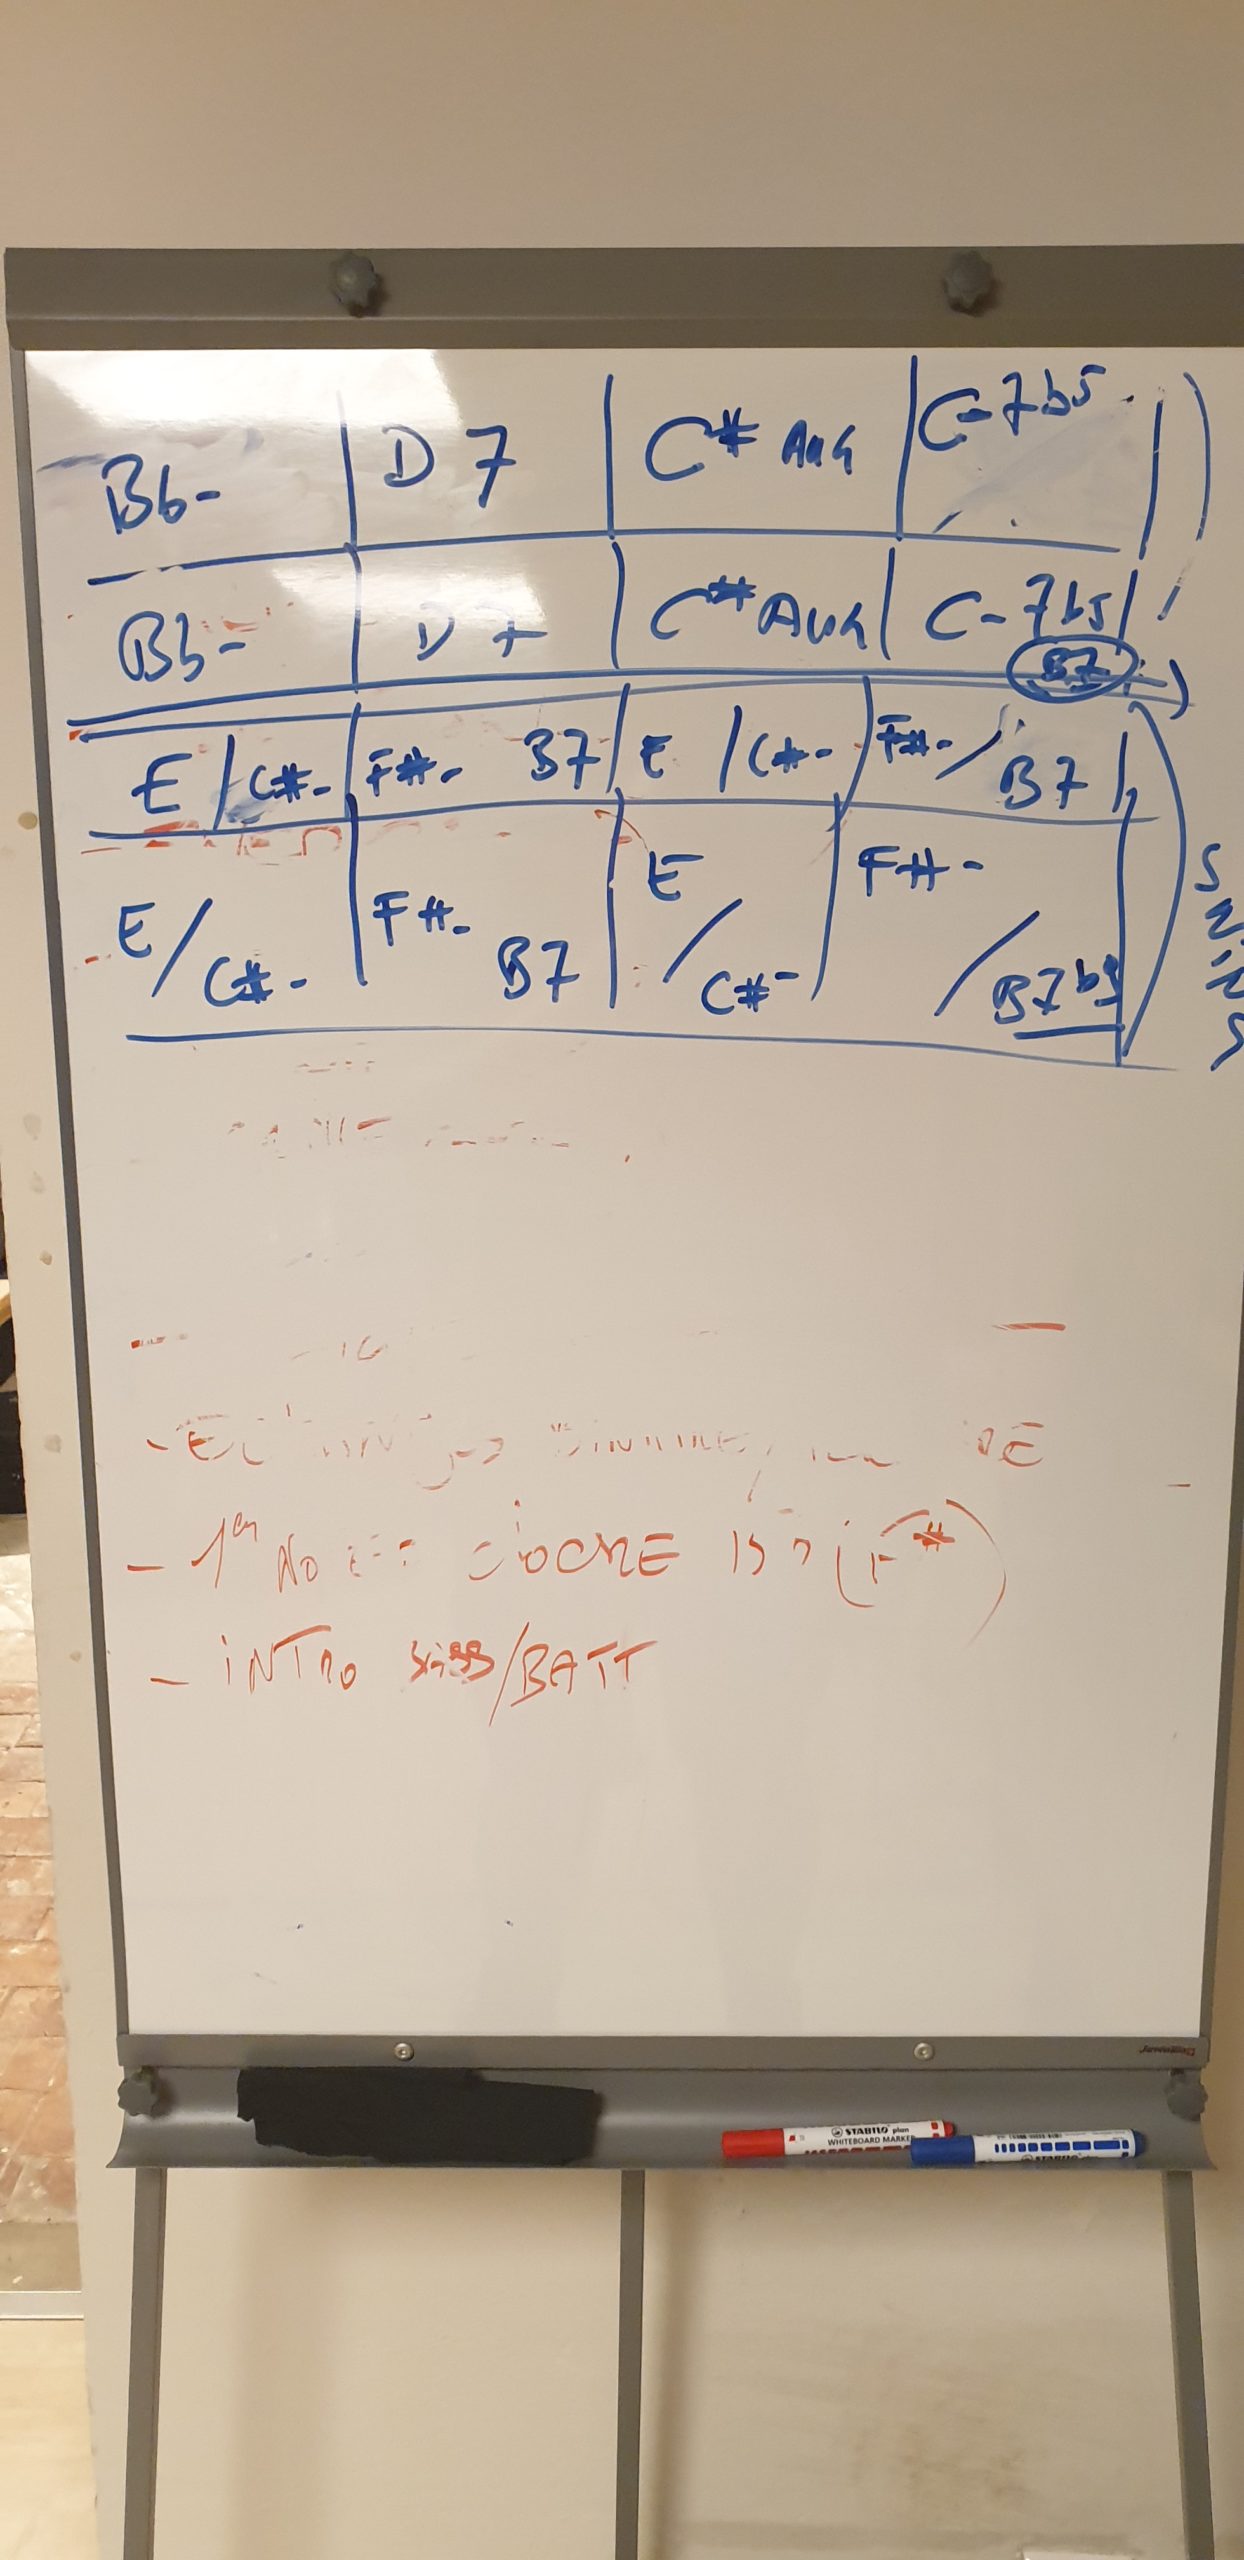 Bb- | D7 | C# Aug | C-7b5
Bb- | D7 | C# Aug | C-7b5
B7
E / C#- | F#- B7 | E / C#- | F#- / B7
E / C#- | F#- B7 | E / C#- | F#- / B7b9
SWING
- 1er
(F#)
- INTRO /BATT
STABILO plan
WHITEBOARD MARKER
STABILO